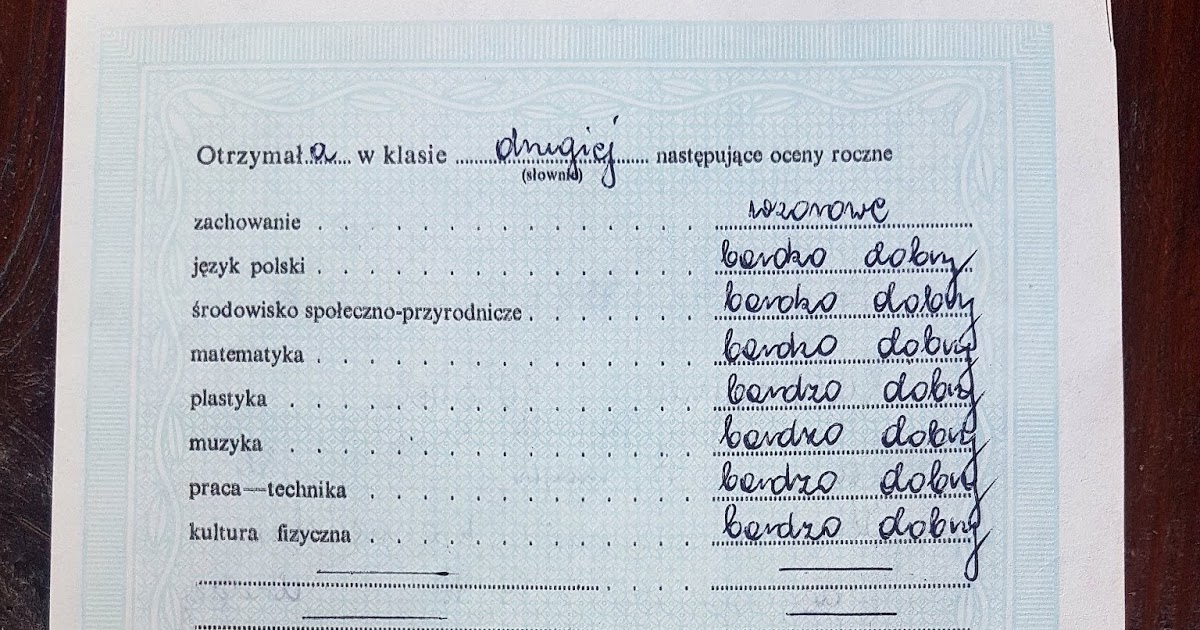 Otrzymał a w klasie drugiej następujące oceny roczne
(słownie)
zachowanie wzorowe
język polski bardzo dobry
środowisko społeczno-przyrodnicze bardzo dobry
matematyka bardzo dobry
plastyka bardzo dobry
muzyka bardzo dobry
praca—technika bardzo dobry
kultura fizyczna bardzo dobry